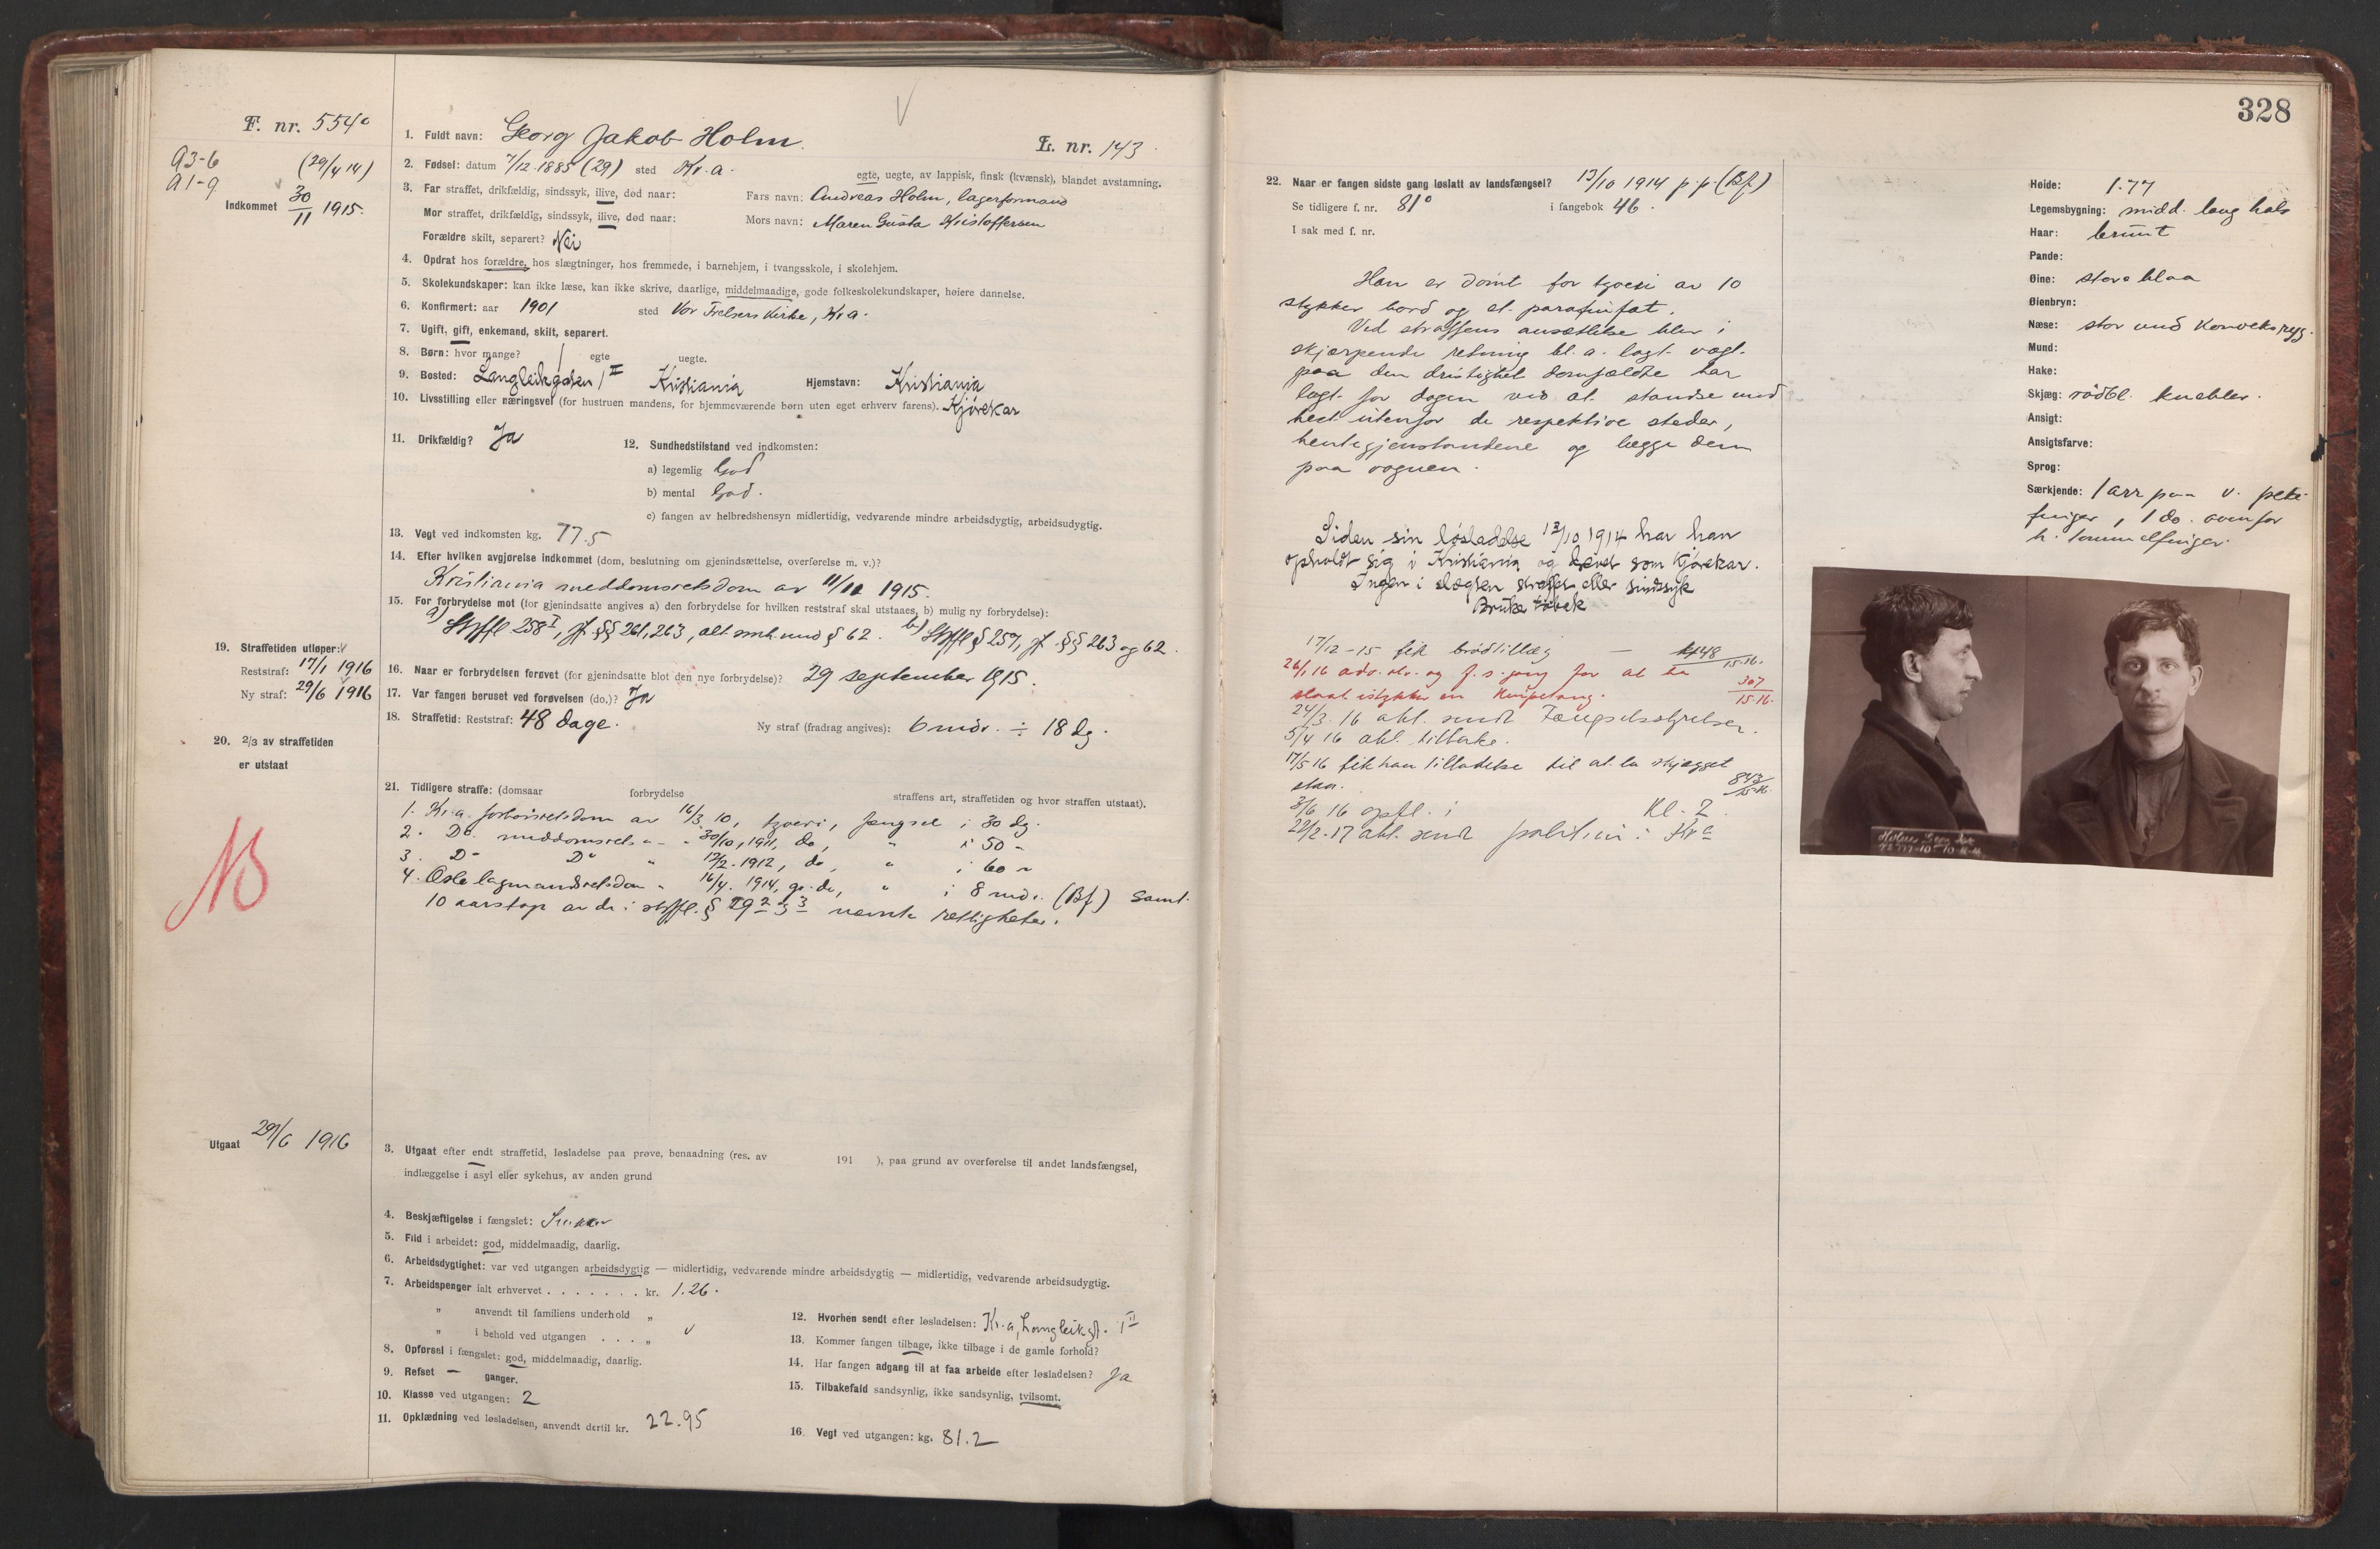 F. nr. 554°
A3-6
A1-9
(29/4 14)
Indkommet 30/11 1915.
1. Fuldt navn: Georg Jakob Holm.
L. nr. 143.
2. Fødsel: datum 7/12.1885 (29) sted Kr.a.
egte, uegte, av lappisk, finsk (kvænsk), blandet avstamning.
3. Far straffet, drikfældig, sindssyk, ilive, død naar: Fars navn: Andreas Holm, lagerformand
Mor straffet, drikfældig, sindssyk, ilive, død naar: Mors navn: Maren Gusta Kristoffersen
Forældre skilt, separert? Nei
4. Opdrat hos forældre, hos slægtninger, hos fremmede, i barnehjem, i tvangsskole, i skolehjem.
5. Skolekundskaper: kan ikke læse, kan ikke skrive, daarlige, middelmaadige, gode folkeskolekundskaper, høiere dannelse.
6. Konfirmert: aar 1901 sted Vor Frelsers Kirke, Kr.a.
7. Ugift, gift, enkemand, skilt, separert.
8. Børn: hvor mange? 1 egte uegte.
9. Bosted: Langleikgaten 1 II Kristiania Hjemstavn: Kristiania
10. Livsstilling eller næringsvei (for hustruen mandens, for hjemmeværende børn uten eget erhverv farens). Kjørekar
11. Drikfældig? Ja
12. Sundhedstilstand ved indkomsten:
a) legemlig God
b) mental God.
c) fangen av helbredshensyn midlertidig, vedvarende mindre arbeidsdygtig, arbeidsudygtig.
13. Vegt ved indkomsten kg. 77.5
14. Efter hvilken avgjørelse indkommet (dom, beslutning om gjenindsættelse, overførelse m. v.)?
Kristiania meddomsretsdom av 11/11 1915.
15. For forbrydelse mot (for gjenindsatte angives a) den forbrydelse for hvilken reststraf skal utstaaes, b) mulig ny forbrydelse):
a) Strffl 258 I, jf. §§ 261, 263, alt smh. med § 62. b) Strffl § 257, jf. §§ 263 og 62.
19. Straffetiden utløper:
Reststraf: 17/1 1916
Ny straf: 29/6 1916
16. Naar er forbrydelsen forøvet (for gjenindsatte blot den nye forbrydelse)? 29 september 1915.
17. Var fangen beruset ved forøvelsen (do.)? Ja
18. Straffetid: Reststraf: 48 dage. Ny straf (fradrag angives): 6 mdr. ÷ 18 dg.
20. 2/3 av straffetiden
er utstaat
21. Tidligere straffe: (domsaar forbrydelse straffens art, straffetiden og hvor straffen utstaat).
1. Kr.a. forhørsretsdom av 16/3 10, tyveri, fængsel i 30 dg.
2. Do. meddomsrets " - " 30/10, 1911, do, " i 50 "
3. Do Do " 12/2. 1912, do, " i 60 "
4. Oslo lagmandsretsdom " 16/4. 1914, gr. do, " i 8 mdr. (Bf) samt
10 aars tap av de i strffl. § 29 2 3 nævnte rettigheter.
Utgaat 29/6 1916
3. Utgaat efter endt straffetid, løsladelse paa prøve, benaadning (res. av 191 ), paa grund av overførelse til andet landsfængsel,
indlæggelse i asyl eller sykehus, av anden grund
4. Beskjæftigelse i fængslet:
5. Flid i arbeidet: god, middelmaadig, daarlig.
6. Arbeidsdygtighet: var ved utgangen arbeidsdygtig — midlertidig, vedvarende mindre arbeidsdygtig — midlertidig, vedvarende arbeidsudygtig.
7. Arbeidspenger ialt erhvervet . . . . . . . kr. 1.26.
" anvendt til familiens underhold "
" i behold ved utgangen . . . "
8. Opførsel i fængslet: god, middelmaadig, daarlig.
9. Refset — ganger.
10. Klasse ved utgangen: 2
11. Opklædning ved løsladelsen, anvendt dertil kr. 22.95
12. Hvorhen sendt efter løsladelsen: Kr.a, Langleikgt. 1 II
13. Kommer fangen tilbage, ikke tilbage i de gamle forhold?
14. Har fangen adgang til at faa arbeide efter løsladelsen? Ja
15. Tilbakefald sandsynlig, ikke sandsynlig, tvilsomt.
16. Vegt ved utgangen: kg. 81.2
328
22. Naar er fangen sidste gang løslatt av landsfængsel? 13/10 1914 p.p. (Bf)
Se tidligere f. nr. 81° i fangebok 46.
I sak med f. nr.
Han er dømt for tyveri av 10
stykker bord og et parafinfat.
Ved straffens ansættelse blev i
skjærpende retning bl. a. lagt vegt
paa den dristighet domfældte har
lagt for dagen ved at standse med
hest utenfor de respektive steder,
hente gjenstandene og lægge dem
paa vognen.
Siden sin løsladelse 13/10 1914 har han
opholdt sig i Kristiania og levet som kjørekar.
Ingen i slægten straffet eller sindssyk
Bruker tobak
17/12-15 fik brødtillæg — 448/15-16.
26/1 16 adv. og f. s. gang for at ha
slaat istykker en 307/15-16.
24/3. 16 akt. sendt Fængselsstyrelsen.
5/4 16 akt. tilbake.
17/5 16 fik han tilladelse til at la skjægget
staa. 843/15-16
3/6 16 opfl. i Kl. 2.
22/2-17 akt. sendt politiet i Kr.a
Høide: 1.77
Legemsbygning: midd. lang hals
Haar: brunt
Pande:
Øine: store blaa
Øienbryn:
Næse: stor med konveks ryg.
Mund:
Hake:
Skjæg: rødbl. knebler.
Ansigt:
Ansigtsfarve:
Sprog:
Særkjende: 1 arr paa v. peke-
finger, 1 do. ovenfor
h. tommelfinger.